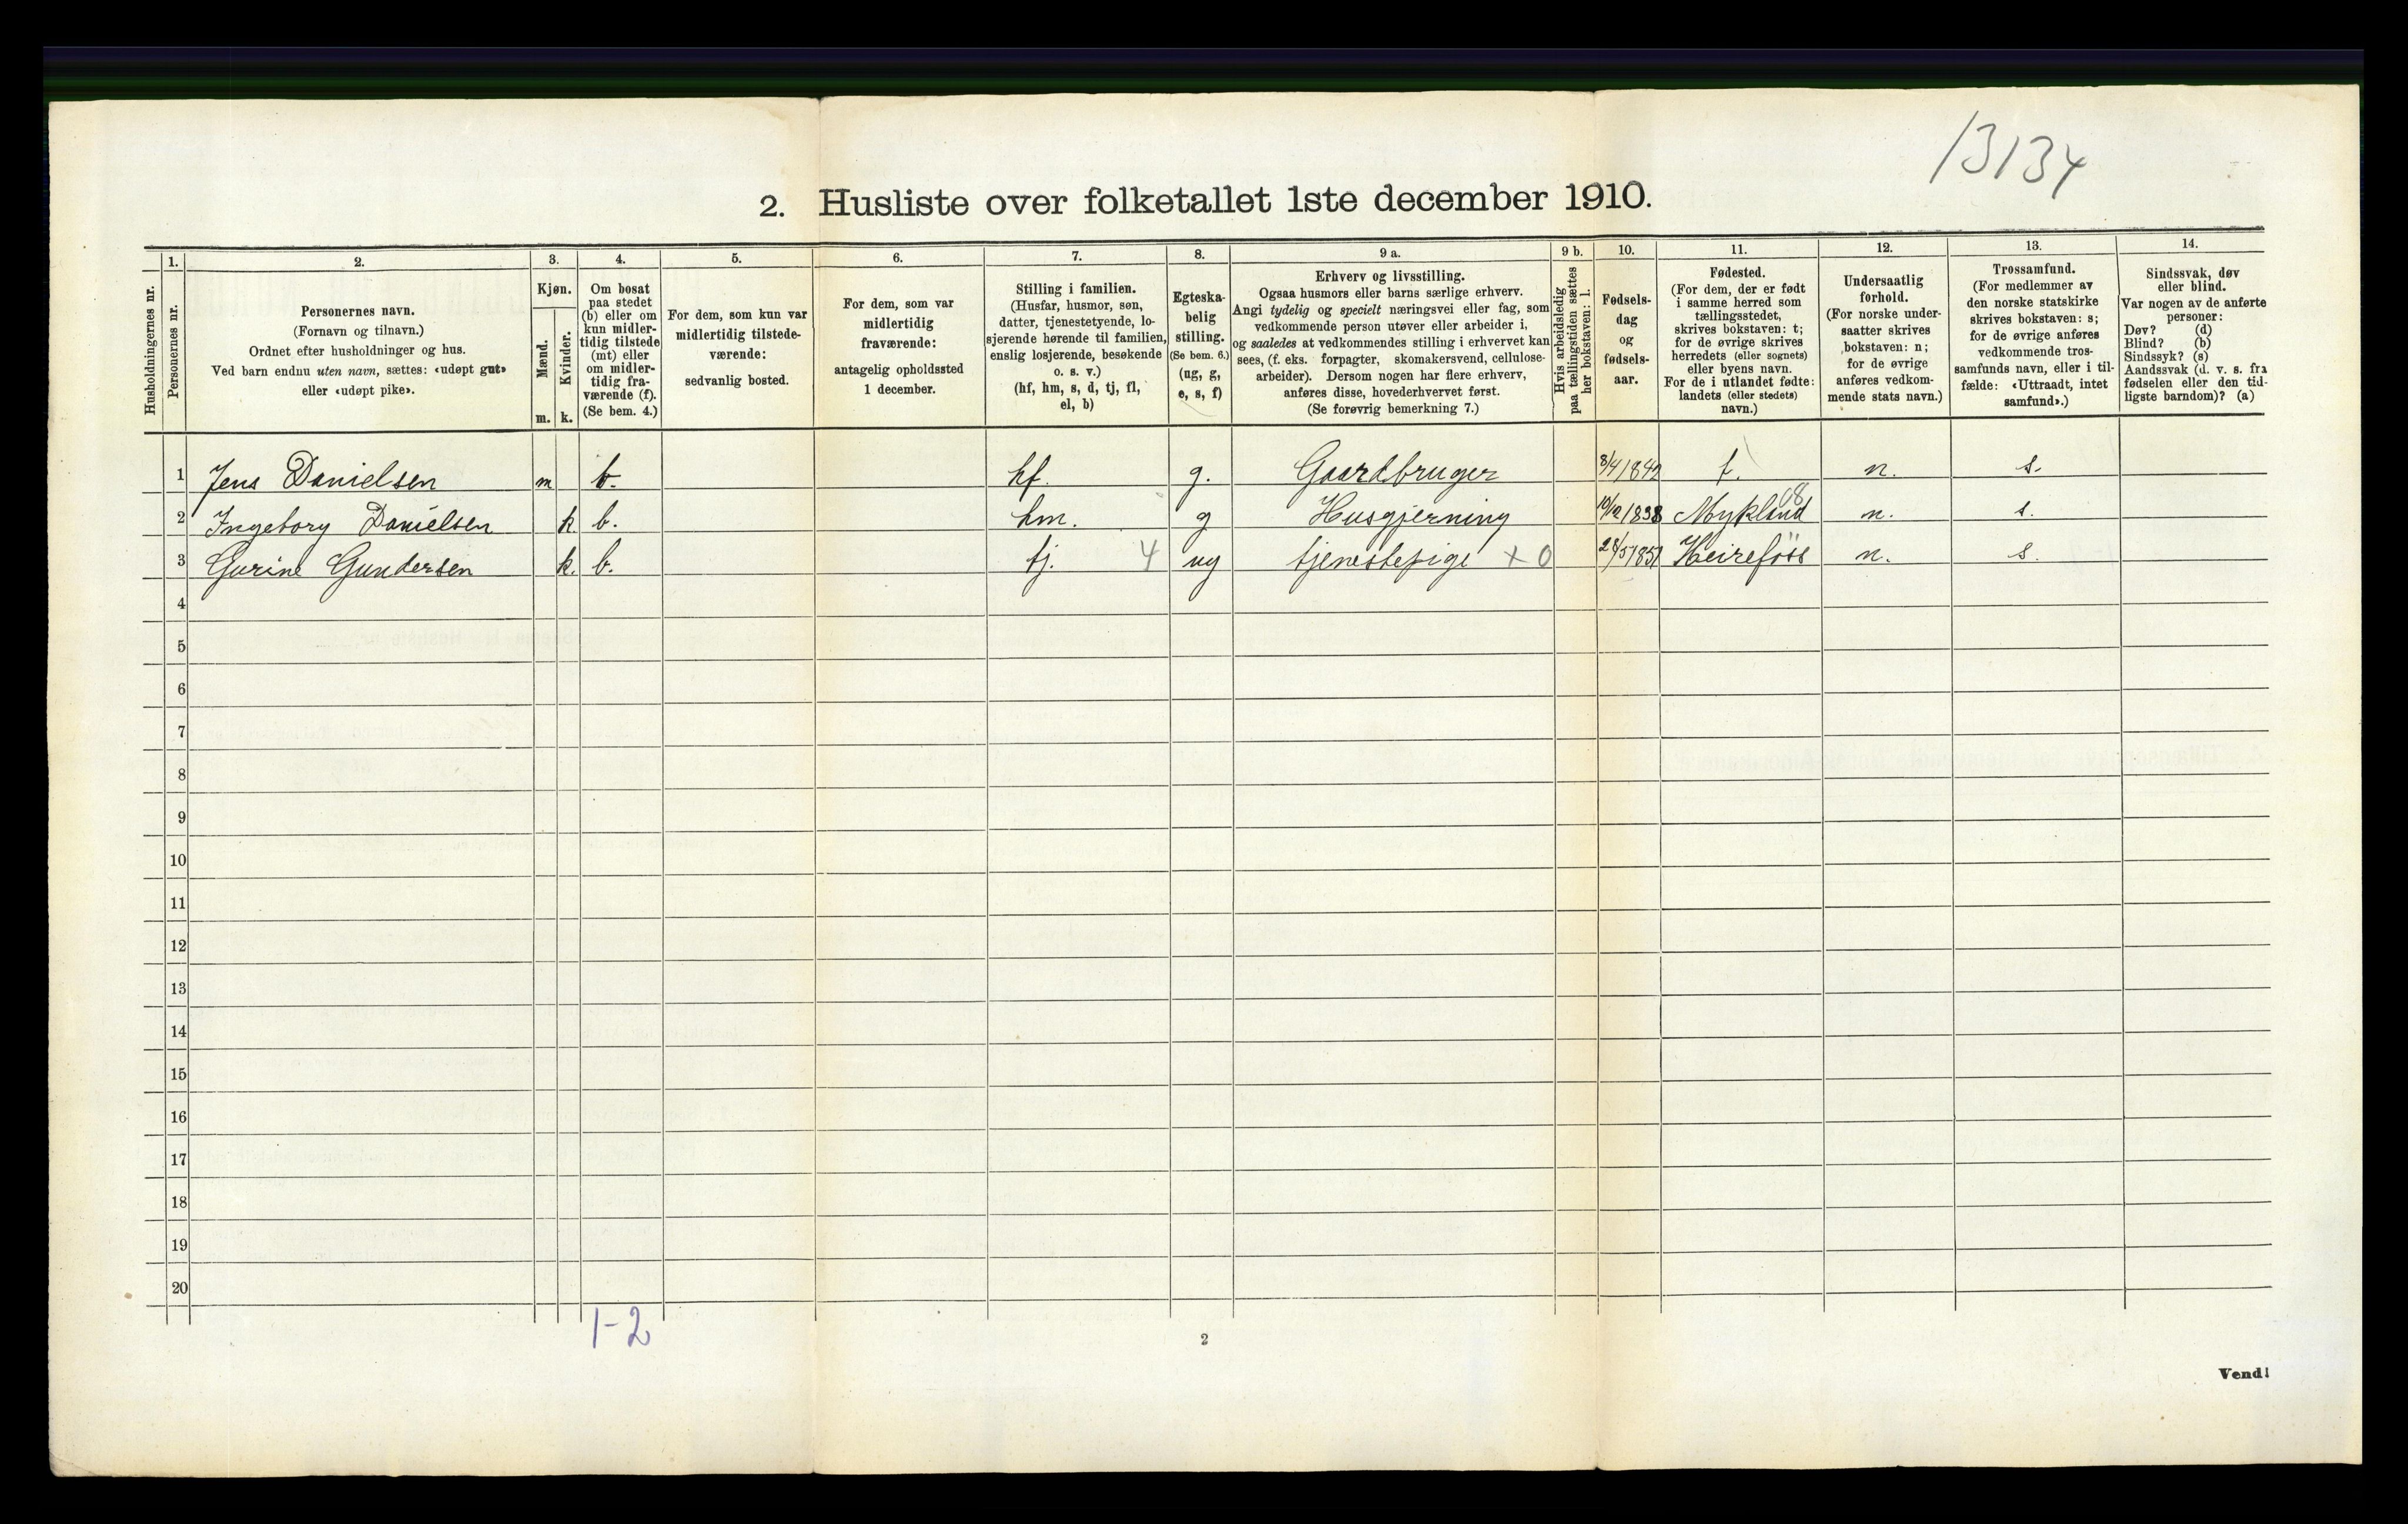 13134
2. Husliste over folketallet 1ste december 1910.
Husholdningernes nr.
1.
Personernes nr.
2.
Personernes navn.
(Fornavn og tilnavn.)
Ordnet efter husholdninger og hus.
Ved barn endnu uten navn, sættes: «udøpt gut»
eller «udøpt pike».
3.
Kjøn.
Mænd.
Kvinder.
m. k.
4.
Om bosat
paa stedet
(b) eller om
kun midler-
tidig tilstede
(mt) eller
om midler-
tidig fra-
værende (f).
(Se bem. 4.)
5.
For dem, som kun var
midlertidig tilstede-
værende:
sedvanlig bosted.
6.
For dem, som var
midlertidig
fraværende:
antagelig opholdssted
1 december.
7.
Stilling i familien.
(Husfar, husmor, søn,
datter, tjenestetyende, lo-
sjerende hørende til familien,
enslig losjerende, besøkende
o. s. v.)
(hf, hm, s, d, tj, fl,
el, b)
8.
Egteska-
belig
stilling.
(Se bem. 6.)
(ug, g,
e, s, f)
9 a.
Erhverv og livsstilling.
Ogsaa husmors eller barns særlige erhverv.
Angi tydelig og specielt næringsvei eller fag, som
vedkommende person utøver eller arbeider i,
og saaledes at vedkommendes stilling i erhvervet kan
sees, (f. eks. forpagter, skomakersvend, cellulose-
arbeider). Dersom nogen har flere erhverv,
anføres disse, hovederhvervet først.
(Se forøvrig bemerkning 7.)
9 b.
Hvis arbeidsledig
paa tællingstiden sættes
her bokstaven: l.
10.
Fødsels-
dag
og
fødsels-
aar.
11.
Fødested.
(For dem, der er født
i samme herred som
tællingsstedet,
skrives bokstaven: t;
for de øvrige skrives
herredets (eller sognets)
eller byens navn.
For de i utlandet fødte:
landets (eller stedets)
navn.)
12.
Undersaatlig
forhold.
(For norske under-
saatter skrives
bokstaven: n;
for de øvrige
anføres vedkom-
mende stats navn.)
13.
Trossamfund.
(For medlemmer av
den norske statskirke
skrives bokstaven: s;
for de øvrige anføres
vedkommende tros-
samfunds navn, eller i til-
fælde: «Uttraadt, intet
samfund».)
14.
Sindssvak, døv
eller blind.
Var nogen av de anførte
personer:
Døv? (d)
Blind? (b)
Sindssyk? (s)
Aandssvak (d. v. s. fra
fødselen eller den tid-
ligste barndom)? (a)
1 Jens Danielsen m b. hf. g. Gaardbruger 8/4 1842 t. n. s.
2 Ingeborg Danielsen k b. hm. g Husgjerning 1838 Mykland 08 n. s.
3 Gurine Gundersen k. b. tj. 4 ug tjenestepige + 0 Heirefôss n. s.
4
5
6
7
8
9
10
11
12
13
14
15
16
17
18
19
20
1-2
2
Vend!